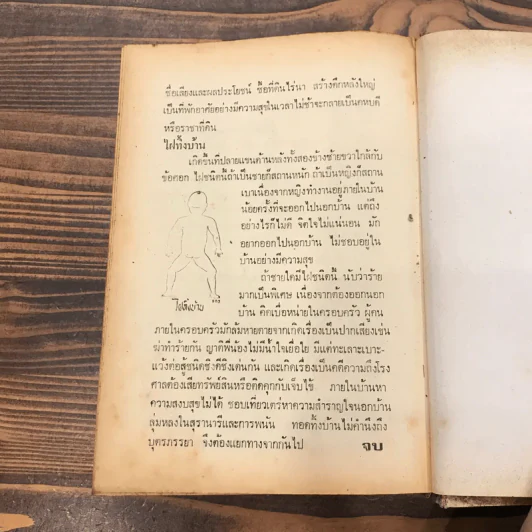 ชื่อเสียงและผลประโยชน์ ซื้อที่ดินไร่นา สร้างตึกหลังใหญ่
เป็นที่พักอาศัยอย่างมีความสุขในเวลาไม่ช้าจะกลายเป็นคหบดี
หรือราชาที่ดิน
ไฝทิ้งบ้าน
เกิดขึ้นที่ปลายแขนด้านหลังทั้งสองข้างซ้ายขวาใกล้กับ
ข้อศอก ไฝชนิดนี้ถ้าเป็นชายก็สถานหนัก ถ้าเป็นหญิงก็สถาน
เบาเนื่องจากหญิงทำงานอยู่ภายในบ้าน
น้อยครั้งที่จะออกไปนอกบ้าน แต่ถึง
อย่างไรก็ไม่ดี จิตใจไม่แน่นอน มัก
อยากออกไปนอกบ้าน ไม่ชอบอยู่ใน
บ้านอย่างมีความสุข
ถ้าชายใดมีไฝชนิดนี้ นับว่าร้าย
มากเป็นพิเศษ เนื่องจากต้องออกนอก
บ้าน คิดเบื่อหน่ายในครอบครัว ผู้คน
ไฝทิ้งบ้าน
ภายในครอบครัวมักล้มหายตายจากเกิดเรื่องเป็นปากเสียงเข่น
ฆ่าทำร้ายกัน ญาติพี่น้องไม่มีน้ำใจเยื่อใย มีแต่ทะเลาะเบาะ-
แว้งต่อสู้ชนิดชิงดีชิงเด่นกัน และเกิดเรื่องเป็นคดีความถึงโรง
ศาลต้องเสียทรัพย์สินหรือติดคุกกับเจ็บไข้ ภายในบ้านหา
ความสงบสุขไม่ได้ ชอบเที่ยวเตร่หาความสำราญใจนอกบ้าน
ลุ่มหลงในสุรานารีและการพนัน ทอดทิ้งบ้านไม่คำนึงถึง
บุตรภรรยา จึงต้องแยกทางจากกันไป จบ